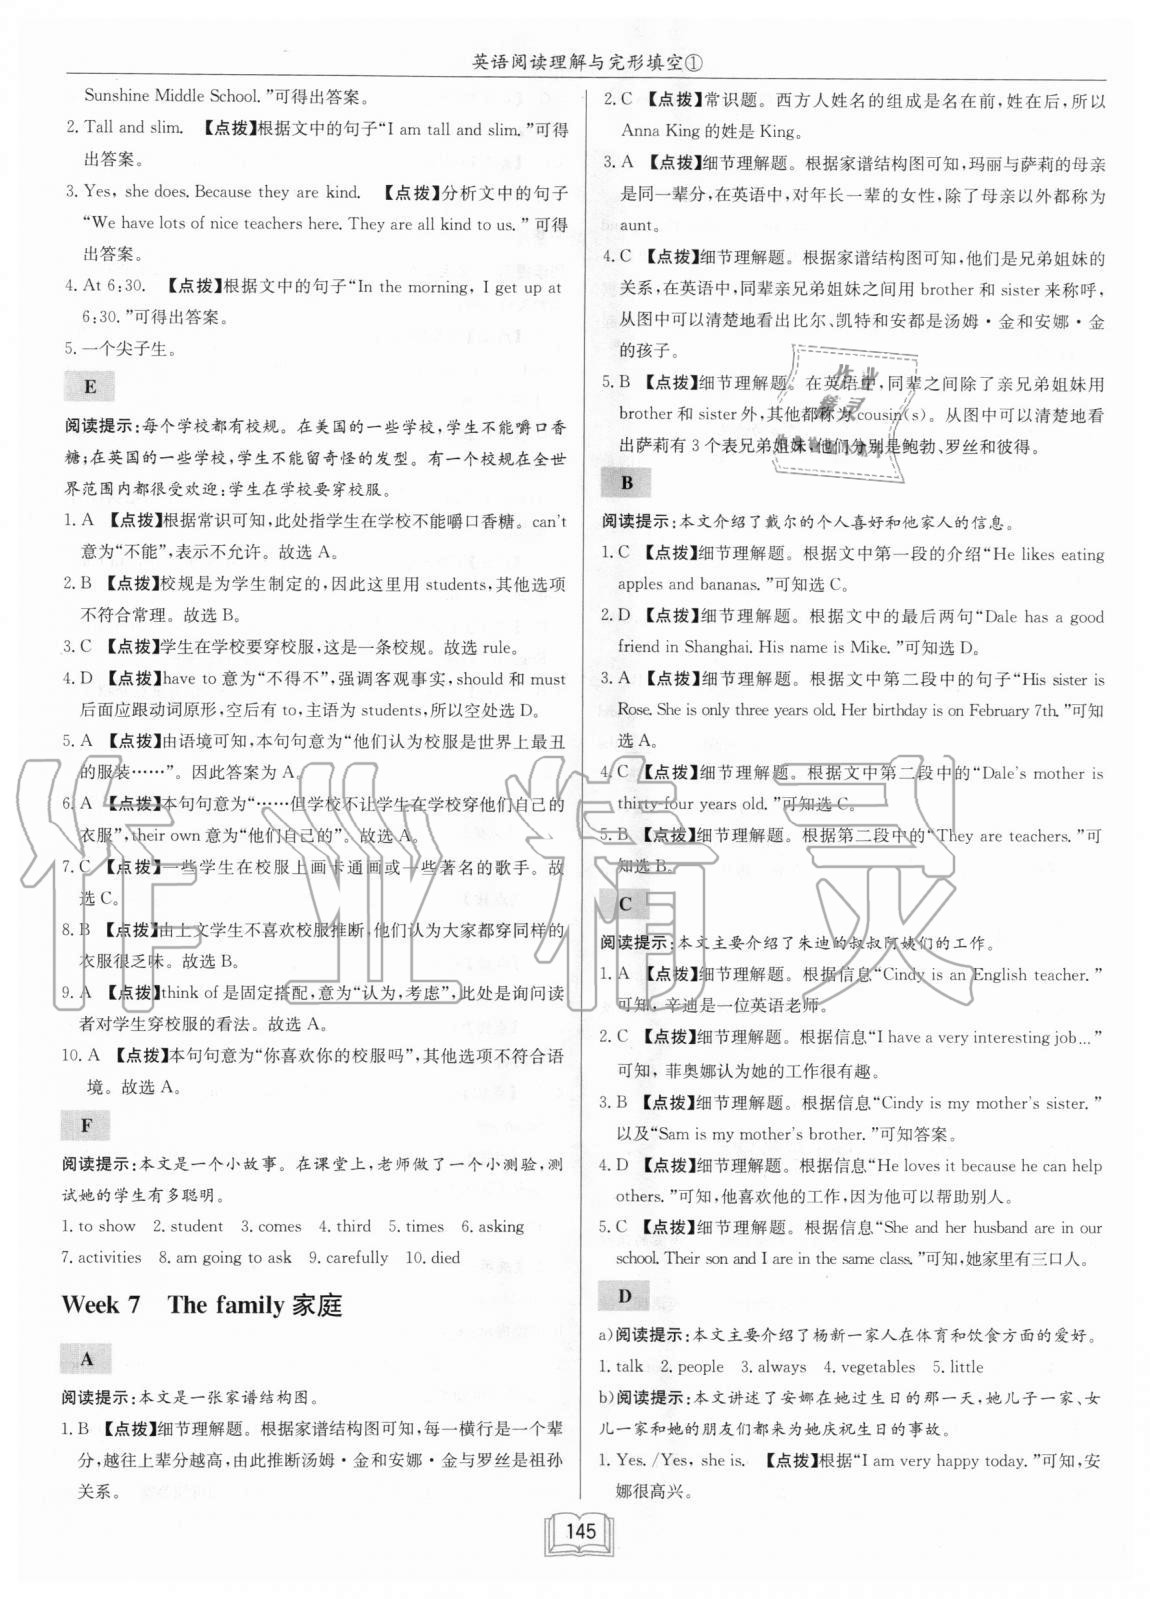 英语阅读理解与完形填空①
Sunshine Middle School. ”可得出答案。
2. Tall and slim. 【点拨】根据文中的句子“I am tall and slim. ”可得
出答案。
3. Yes, she does. Because they are kind. 【点拨】分析文中的句子
“We have lots of nice teachers here. They are all kind to us. ” 可得
出答案。
4. At 6:30. 【点拨】根据文中的句子“In the morning, I get up at
6:30. ”可得出答案。
5. 一个尖子生。
E
阅读提示:每个学校都有校规。在美国的一些学校,学生不能嚼口香
糖;在英国的一些学校,学生不能留奇怪的发型。有一个校规在全世
界范围内都很受欢迎:学生在学校要穿校服。
1. A 【点拨】根据常识可知,此处指学生在学校不能嚼口香糖。can't
意为“不能”,表示不允许。故选 A。
2. B 【点拨】校规是为学生制定的,因此这里用 students,其他选项
不符合常理。故选 B。
3. C 【点拨】学生在学校要穿校服,这是一条校规。故选 rule。
4. D 【点拨】have to 意为“不得不”,强调客观事实,should 和 must
后面应跟动词原形,空后有 to,主语为 students,所以空处选 D。
5. A 【点拨】由语境可知,本句句意为“他们认为校服是世界上最丑
的服装……”。因此答案为 A。
6. A 【点拨】本句句意为“……但学校不让学生在学校穿他们自己的
衣服”,their own 意为“他们自己的”。故选 A。
7. C 【点拨】一些学生在校服上画卡通画或一些著名的歌手。故
选 C。
8. B 【点拨】由上文学生不喜欢校服推断,他们认为大家都穿同样的
衣服很乏味。故选 B。
9. A 【点拨】think of 是固定搭配,意为“认为,考虑”,此处是询问读
者对学生穿校服的看法。故选 A。
10. A 【点拨】本句句意为“你喜欢你的校服吗”,其他选项不符合语
境。故选 A。
F
阅读提示:本文是一个小故事。在课堂上,老师做了一个小测验,测
试她的学生有多聪明。
1. to show 2. student 3. comes 4. third 5. times 6. asking
7. activities 8. am going to ask 9. carefully 10. died
Week 7 The family 家庭
A
阅读提示:本文是一张家谱结构图。
1. B 【点拨】细节理解题。根据家谱结构图可知,每一横行是一个辈
分,越往上辈分越高,由此推断汤姆·金和安娜·金与罗丝是祖孙
关系。
2. C 【点拨】常识题。西方人姓名的组成是名在前,姓在后,所以
Anna King 的姓是 King。
3. A 【点拨】细节理解题。根据家谱结构图可知,玛丽与萨莉的母亲
是同一辈分,在英语中,对年长一辈的女性,除了母亲以外都称为
aunt。
4. C 【点拨】细节理解题。根据家谱结构图可知,他们是兄弟姐妹的
关系,在英语中,同辈亲兄弟姐妹之间用 brother 和 sister 来称呼,
从图中可以清楚地看出比尔、凯特和安都是汤姆·金和安娜·金
的孩子。
5. B 【点拨】细节理解题。在英语中,同辈之间除了亲兄弟姐妹用
brother 和 sister 外,其他都称为 cousin(s)。从图中可以清楚地看
出萨莉有 3 个表兄弟姐妹,他们分别是鲍勃、罗丝和彼得。
B
阅读提示:本文介绍了戴尔的个人喜好和他家人的信息。
1. C 【点拨】细节理解题。根据文中第一段的介绍“He likes eating
apples and bananas. ”可知选 C。
2. D 【点拨】细节理解题。根据文中的最后两句“Dale has a good
friend in Shanghai. His name is Mike. ”可知选 D。
3. A 【点拨】细节理解题。根据文中第二段中的句子“His sister is
Rose. She is only three years old. Her birthday is on February 7th. ”可知
选 A。
4. C 【点拨】细节理解题。根据文中第二段中的“Dale's mother is
thirty-four years old. ”可知选 C。
5. B 【点拨】细节理解题。根据第二段中的“They are teachers. ”可
知选 B。
C
阅读提示:本文主要介绍了朱迪的叔叔阿姨们的工作。
1. A 【点拨】细节理解题。根据信息“Cindy is an English teacher. ”
可知,辛迪是一位英语老师。
2. C 【点拨】细节理解题。根据信息“I have a very interesting job...”
可知,菲奥娜认为她的工作很有趣。
3. B 【点拨】细节理解题。根据信息“Cindy is my mother's sister. ”
以及“Sam is my mother's brother. ”可知答案。
4. D 【点拨】细节理解题。根据信息“He loves it because he can help
others. ”可知,他喜欢他的工作,因为他可以帮助别人。
5. C 【点拨】细节理解题。根据信息“She and her husband are in our
school. Their son and I are in the same class. ”可知,她家里有三口人。
D
a)阅读提示:本文主要介绍了杨新一家人在体育和饮食方面的爱好。
1. talk 2. people 3. always 4. vegetables 5. little
b)阅读提示:本文讲述了安娜在她过生日的那一天,她儿子一家、女
儿一家和她的朋友们都来为她庆祝生日的事故。
1. Yes. /Yes, she is. 【点拨】根据“I am very happy today. ”可知,安
娜很高兴。
145
作业精灵
作业
精灵